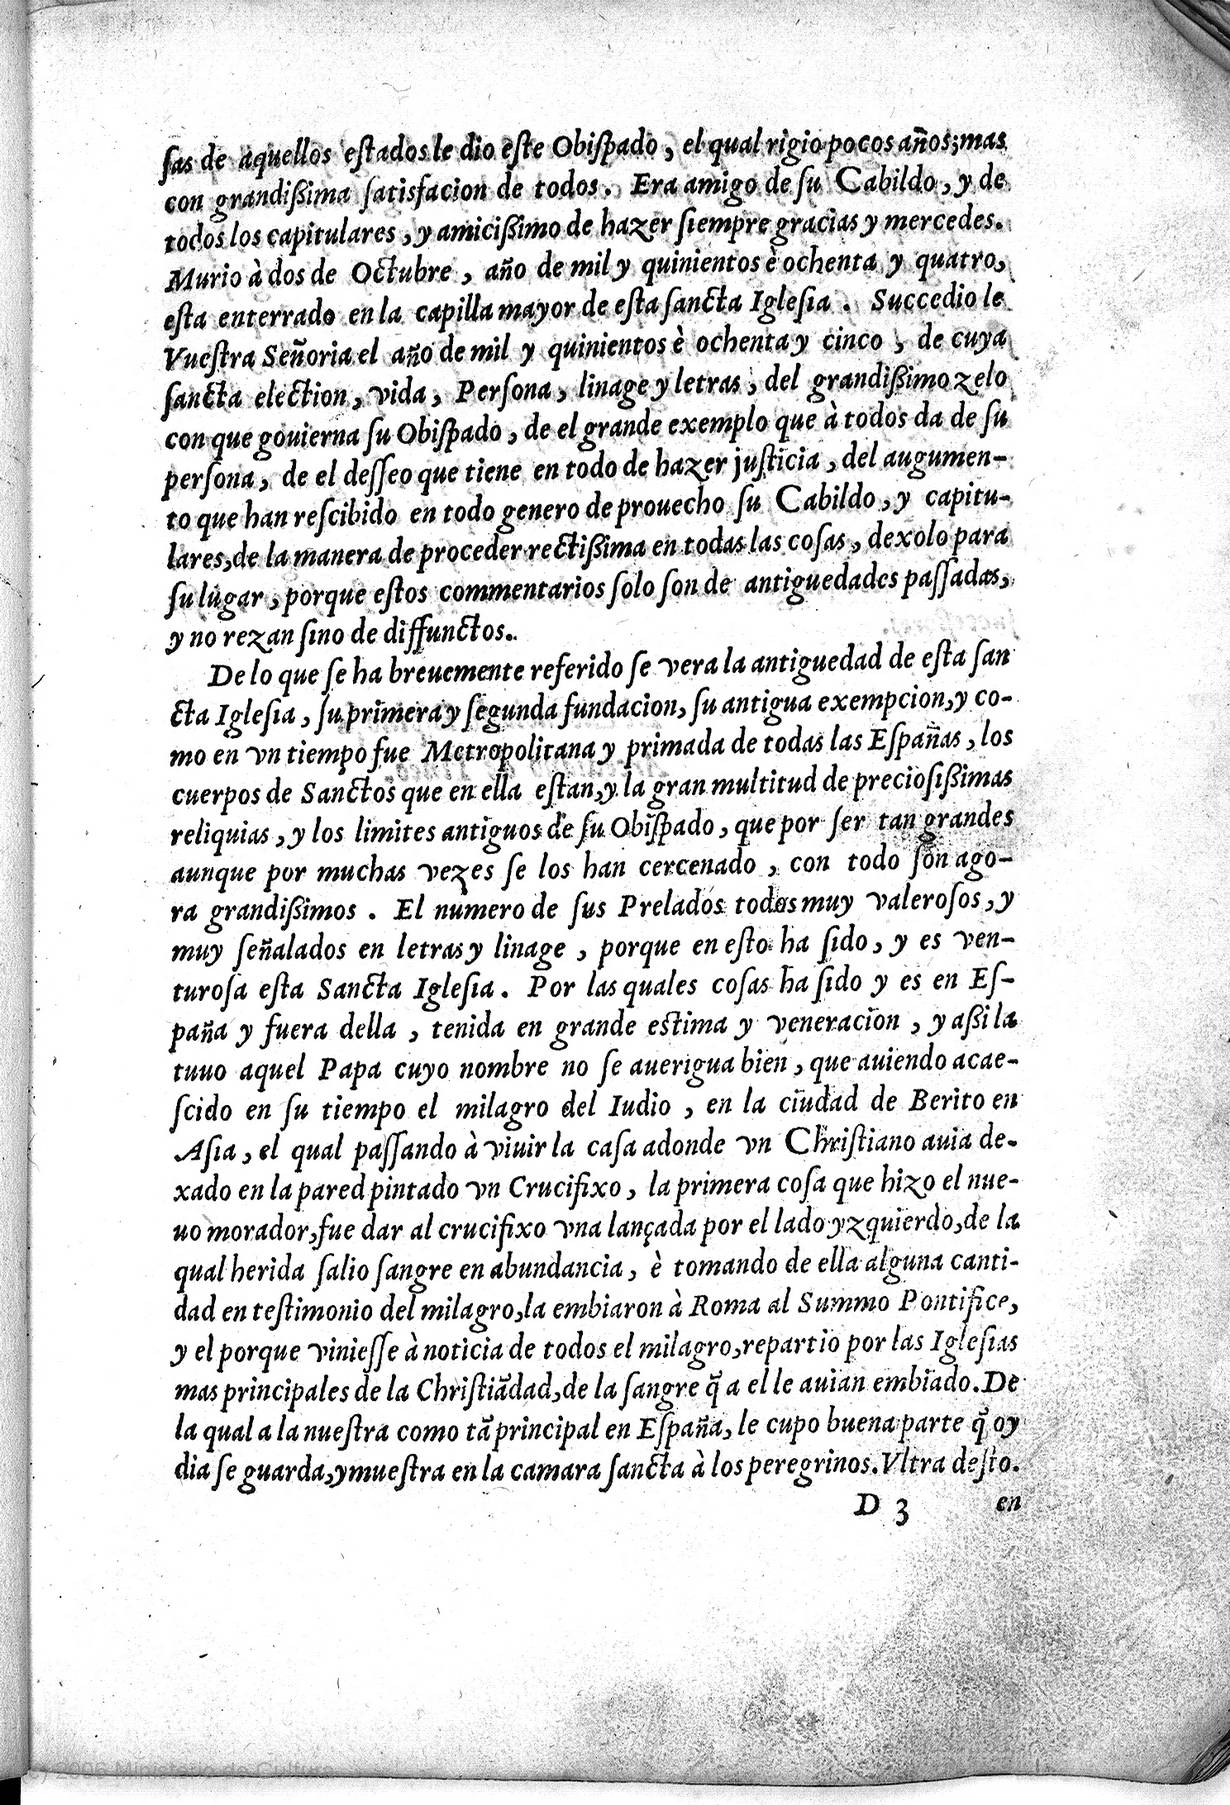 ſas de aquellos eſtados le dio eſte Obiſpado, el qual rigio pocos años; mas
con grandiſsima ſatisfacion de todos. Era amigo de ſu Cabildo, y de
todos los capitulares, y amiciſsimo de hazer ſiempre gracias y mercedes.
Murio à dos de Octubre, año de mil y quinientos è ochenta y quatro,
eſta enterrado en la capilla mayor de eſta ſancta Igleſia. Succedio le
Vueſtra Señoria el año de mil y quinientos è ochenta y cinco, de cuya
ſancta election, vida, Perſona, linage y letras, del grandiſsimo zelo
con que gouierna ſu Obiſpado, de el grande exemplo que à todos da de ſu
perſona, de el deſſeo que tiene en todo de hazer juſticia, del augumen-
to que han reſcibido en todo genero de prouecho ſu Cabildo, y capitu-
lares, de la manera de proceder rectiſsima en todas las coſas, dexolo para
ſu lugar, porque eſtos commentarios ſolo ſon de antiguedades paſſadas,
y no rezan ſino de diffunctos.
De lo que ſe ha breuemente referido ſe vera la antiguedad de eſta ſan
cta Igleſia, ſu primera y ſegunda fundacion, ſu antigua exempcion, y co-
mo en vn tiempo fue Metropolitana y primada de todas las Eſpañas, los
cuerpos de Sanctos que en ella eſtan, y la gran multitud de precioſiſsimas
reliquias, y los limites antiguos de ſu Obiſpado, que por ſer tan grandes
aunque por muchas vezes ſe los han cercenado, con todo ſon ago-
ra grandiſsimos. El numero de ſus Prelados todos muy valeroſos, y
muy ſeñalados en letras y linage, porque en eſto ha ſido, y es ven-
turoſa eſta Sancta Igleſia. Por las quales coſas ha ſido y es en Eſ-
paña y fuera della, tenida en grande eſtima y veneracion, y aſsi la
tuuo aquel Papa cuyo nombre no ſe auerigua bien, que auiendo acae-
ſcido en ſu tiempo el milagro del Iudio, en la ciudad de Berito en
Aſia, el qual paſſando à viuir la caſa adonde vn Chriſtiano auia de-
xado en la pared pintado vn Crucifixo, la primera coſa que hizo el nue-
uo morador, fue dar al crucifixo vna lançada por el lado yzquierdo, de la
qual herida ſalio ſangre en abundancia, è tomando de ella alguna canti-
dad en teſtimonio del milagro, la embiaron à Roma al Summo Pontifice,
y el porque vinieſſe à noticia de todos el milagro, repartio por las Igleſias
mas principales de la Chriſtiãdad, de la ſangre q̃ a el le auian embiado. De
la qual a la nueſtra como tã principal en Eſpaña, le cupo buena parte q̃ oy
dia ſe guarda, y mueſtra en la camara ſancta à los peregrinos. Vltra deſto.
D 3 en
(c) 2006 Ministerio de Cultura